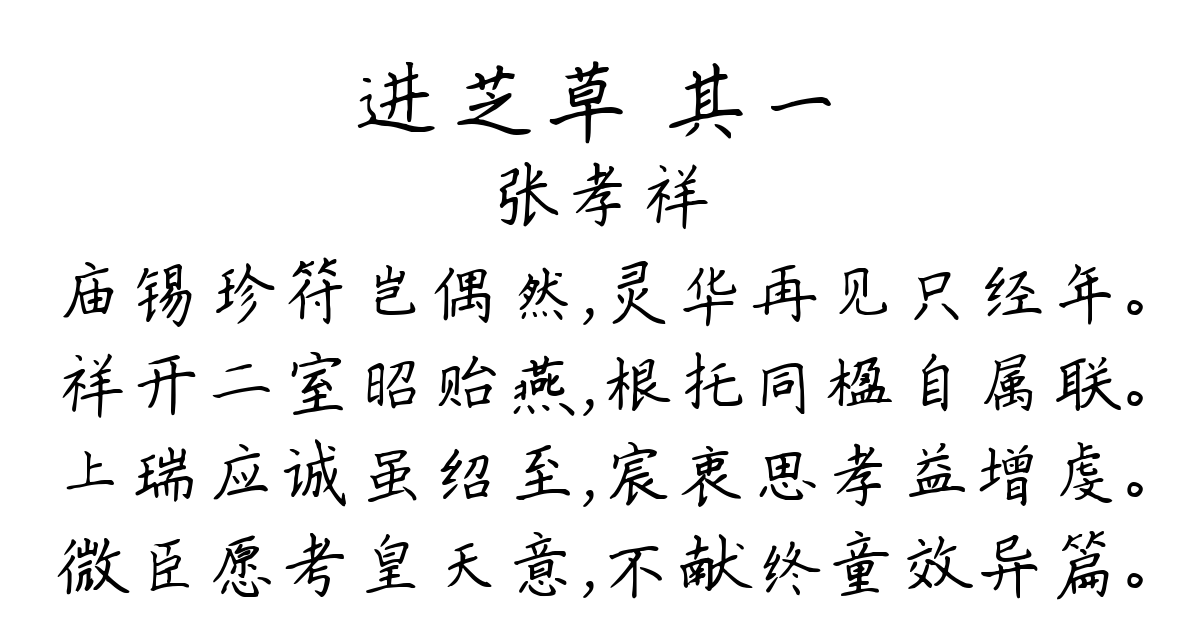 进芝草 其一
张孝祥
庙锡珍符岂偶然,灵华再见只经年。
祥开二室昭贻燕,根托同楹自属联。
上瑞应诚虽绍至,宸衷思孝益增虔。
微臣愿考皇天意,不献终童效异篇。